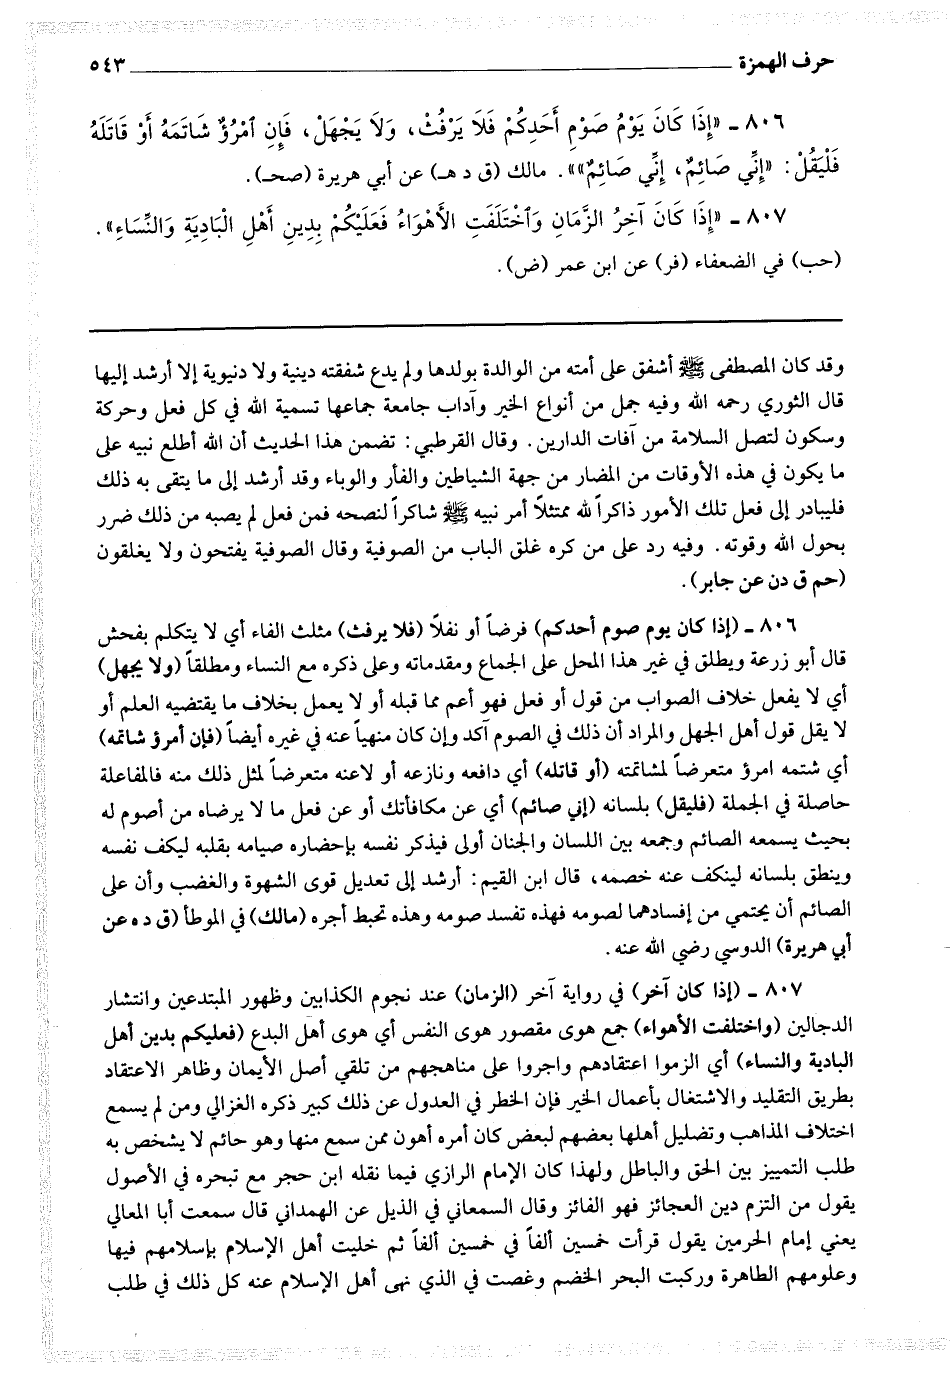 حرف الهمزة ٥٤٣
٨٠٦ ـ «إِذَا كَانَ يَوْمُ صَوْمِ أَحَدِكُمْ فَلَا يَرْفُثْ، وَلَا يَجْهَلْ، فَإِنِ ٱمْرُؤٌ شَاتَمَهُ أَوْ قَاتَلَهُ
فَلْيَقُلْ: «إِنِّي صَائِمٌ، إِنِّي صَائِمٌ»». مالك (ق د هـ) عن أبي هريرة (صحـ).
٨٠٧ ـ «إِذَا كَانَ آخِرُ الزَّمَانِ وَٱخْتَلَفَتِ الأَهْوَاءُ فَعَلَيْكُمْ بِدِينِ أَهْلِ الْبَادِيَةِ وَالنِّسَاءِ».
(حب) في الضعفاء (فر) عن ابن عمر (ض).
وقد كان المصطفى ﷺ أشفق على أمته من الوالدة بولدها ولم يدع شفقته دينية ولا دنيوية إلا أرشد إليها
قال الثوري رحمه الله وفيه جمل من أنواع الخير وآداب جامعة جماعها تسمية الله في كل فعل وحركة
وسكون لتصل السلامة من آفات الدارين. وقال القرطبي: تضمن هذا الحديث أن الله أطلع نبيه على
ما يكون في هذه الأوقات من المضار من جهة الشياطين والفأر والوباء وقد أرشد إلى ما يتقى به ذلك
فليبادر إلى فعل تلك الأمور ذاكراً لله ممتثلاً أمر نبيه ﷺ شاكراً لنصحه فمن فعل لم يصبه من ذلك ضرر
بحول الله وقوته. وفيه رد على من كره غلق الباب من الصوفية وقال الصوفية يفتحون ولا يغلقون
(حم ق دن عن جابر).
٨٠٦ ـ (إذا كان يوم صوم أحدكم) فرضاً أو نفلاً (فلا يرفث) مثلث الفاء أي لا يتكلم بفحش
قال أبو زرعة ويطلق في غير هذا المحل على الجماع ومقدماته وعلى ذكره مع النساء ومطلقاً (ولا يجهل)
أي لا يفعل خلاف الصواب من قول أو فعل فهو أعم مما قبله أو لا يعمل بخلاف ما يقتضيه العلم أو
لا يقل قول أهل الجهل والمراد أن ذلك في الصوم آكد وإن كان منهياً عنه في غيره أيضاً (فإن أمرؤ شاتمه)
أي شتمه امرؤ متعرضاً لمشاتمته (أو قاتله) أي دافعه ونازعه أو لاعنه متعرضاً لمثل ذلك منه فالمفاعلة
حاصلة في الجملة (فليقل) بلسانه (إني صائم) أي عن مكافأتك أو عن فعل ما لا يرضاه من أصوم له
بحيث يسمعه الصائم وجمعه بين اللسان والجنان أولى فيذكر نفسه بإحضاره صيامه بقلبه ليكف نفسه
وينطق بلسانه لينكف عنه خصمه، قال ابن القيم: أرشد إلى تعديل قوى الشهوة والغضب وأن على
الصائم أن يحتمي من إفسادهما لصومه فهذه تفسد صومه وهذه تحبط أجره (مالك) في الموطأ (ق د ه عن
أبي هريرة) الدوسي رضي الله عنه.
٨٠٧ ـ (إذا كان آخر) في رواية آخر (الزمان) عند نجوم الكذابين وظهور المبتدعين وانتشار
الدجالين (واختلفت الأهواء) جمع هوى مقصور هوى النفس أي هوى أهل البدع (فعليكم بدين أهل
البادية والنساء) أي الزموا اعتقادهم واجروا على مناهجهم من تلقي أصل الأيمان وظاهر الاعتقاد
بطريق التقليد والاشتغال بأعمال الخير فإن الخطر في العدول عن ذلك كبير ذكره الغزالي ومن لم يسمع
اختلاف المذاهب وتضليل أهلها بعضهم لبعض كان أمره أهون ممن سمع منها وهو حائم لا يشخص به
طلب التمييز بين الحق والباطل ولهذا كان الإمام الرازي فيما نقله ابن حجر مع تبحره في الأصول
يقول من التزم دين العجائز فهو الفائز وقال السمعاني في الذيل عن الهمداني قال سمعت أبا المعالي
يعني إمام الحرمين يقول قرأت خمسين ألفاً في خمسين ألفاً ثم خليت أهل الإسلام بإسلامهم فيها
وعلومهم الطاهرة وركبت البحر الخضم وغصت في الذي نهى أهل الإسلام عنه كل ذلك في طلب